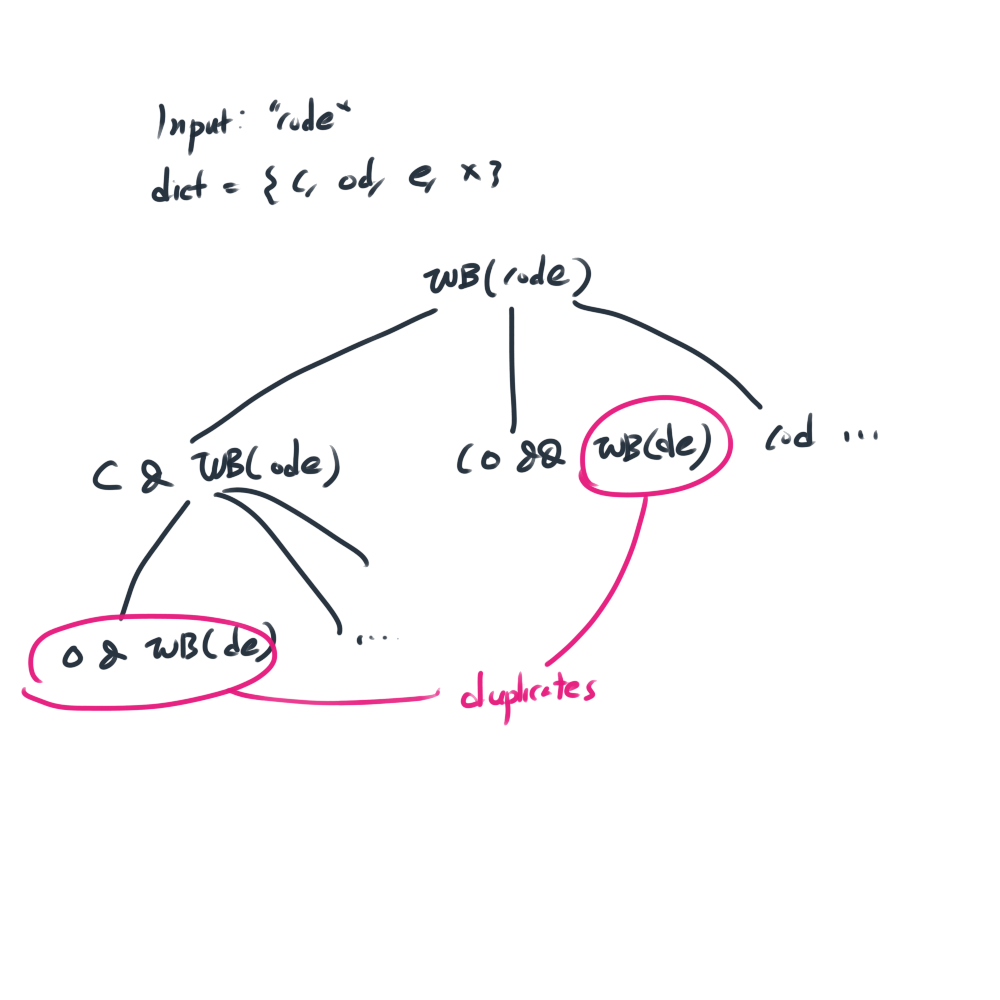 Input: "code"
dict = { c, od, e, x }
WB(code)
C & WB(ode)
CO && WB(de)
cod ...
O & WB(de)
....
duplicates